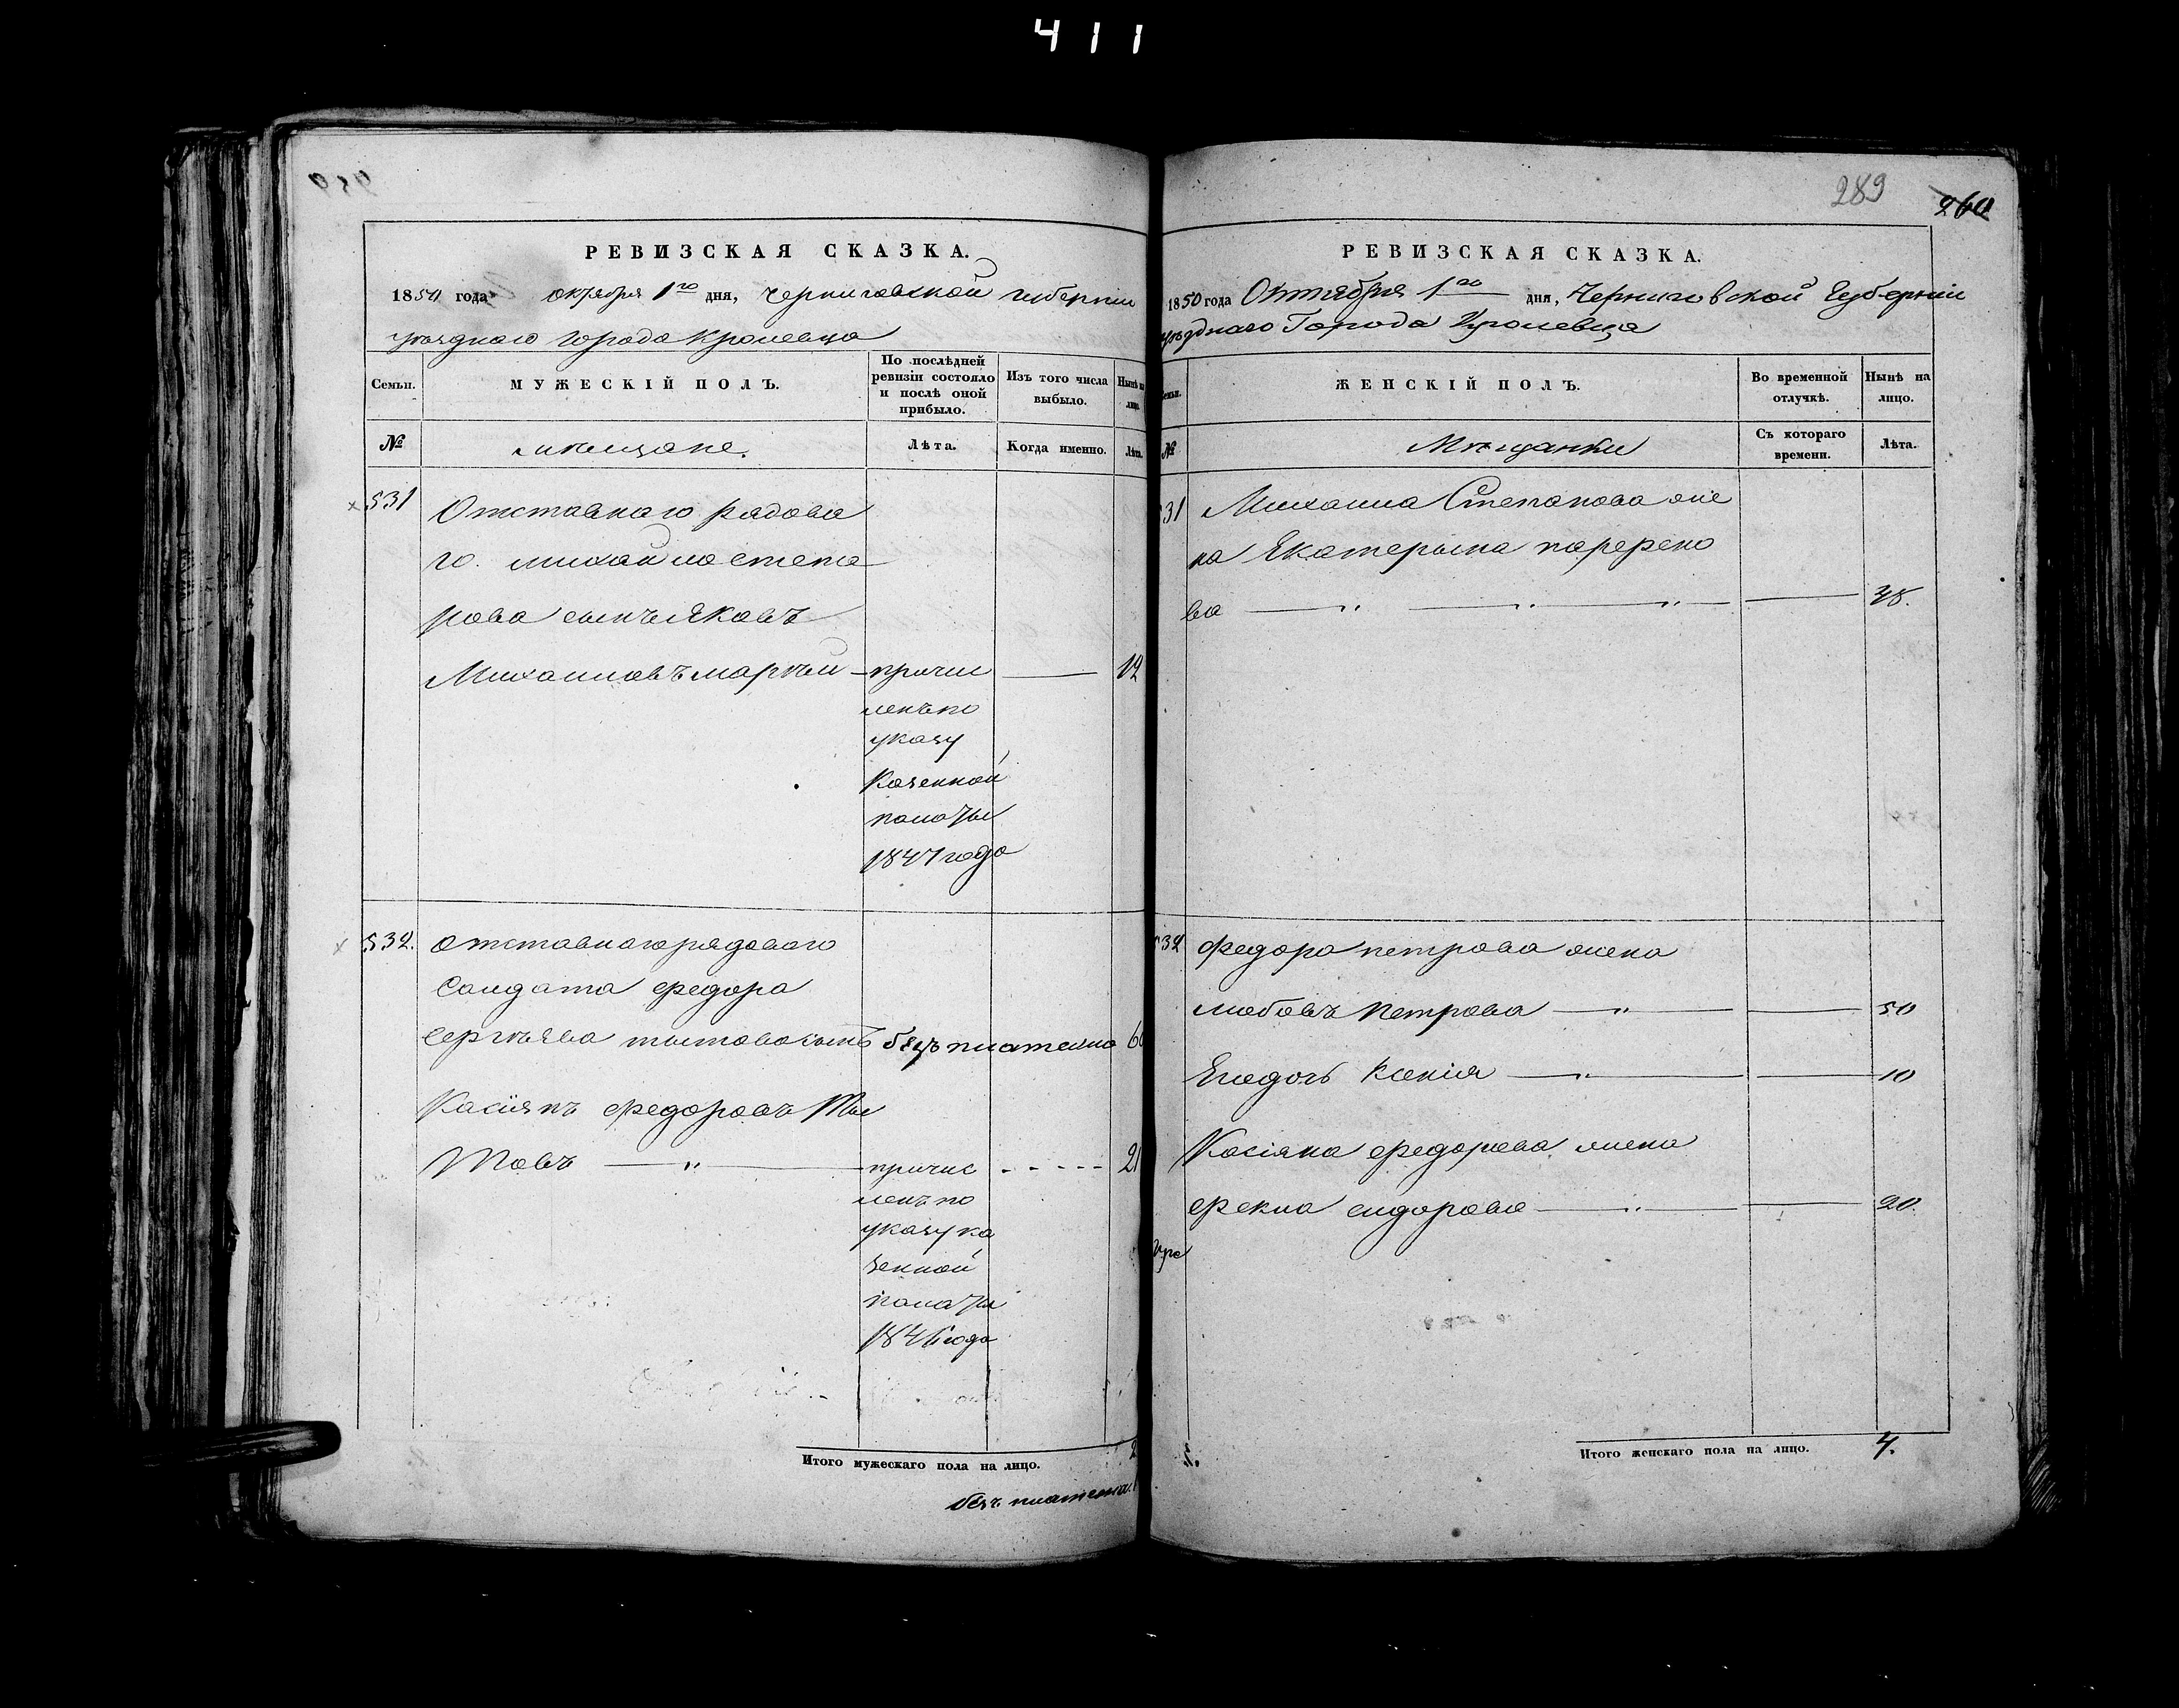 411
РЕВИЗСКАЯ СКАЗКА.
1850 года октября 1го дня, Черниговской губернiи
уѣзднаго города Кролевца
Семьи.
МУЖЕСКІЙ ПОЛЪ.
По послѣдней ревизіи состояло и послѣ оной прибыло.
Изъ того числа выбыло.
Нынѣ на лицо.
№
мѣщане.
Лѣта.
Когда именно.
Лѣта.
531
Отставнаго рядова
го. михайла степа
нова сынъ Яковъ
Михаиловъ — причис — 12
ленъ по
указу
Казенной
палаты
1847 года
532. отставнаго рядоваго
Салдата федора
Сергѣева тытова сынъ безъ платежа 60
Касіянъ федоровъ Ты
Товъ — " — причис - - - - - 21
ленъ по
указу ка
зенной
палаты
1846 года
Итого мужескаго пола на лицо. 2
безъ платежа. 1
289
260
РЕВИЗСКАЯ СКАЗКА.
1850 года Октября 1го дня, Черниговской Губерніи
уѣзднаго Города Кролевца
Семьи.
ЖЕНСКІЙ ПОЛЪ.
Во временной отлучкѣ.
Нынѣ на лицо.
№
Мѣщанки
Съ котораго времени.
Лѣта.
531 Михаила Степанова же
на Екатерына
ва — " — " — " — 38.
532 федора петрова жена
любовъ Петрова — " — 50
Егодочь Ксенія — " — 10
Касіяна федорова жена
фекла сидорова — " — 20.
Итого женскаго пола на лицо. 4.